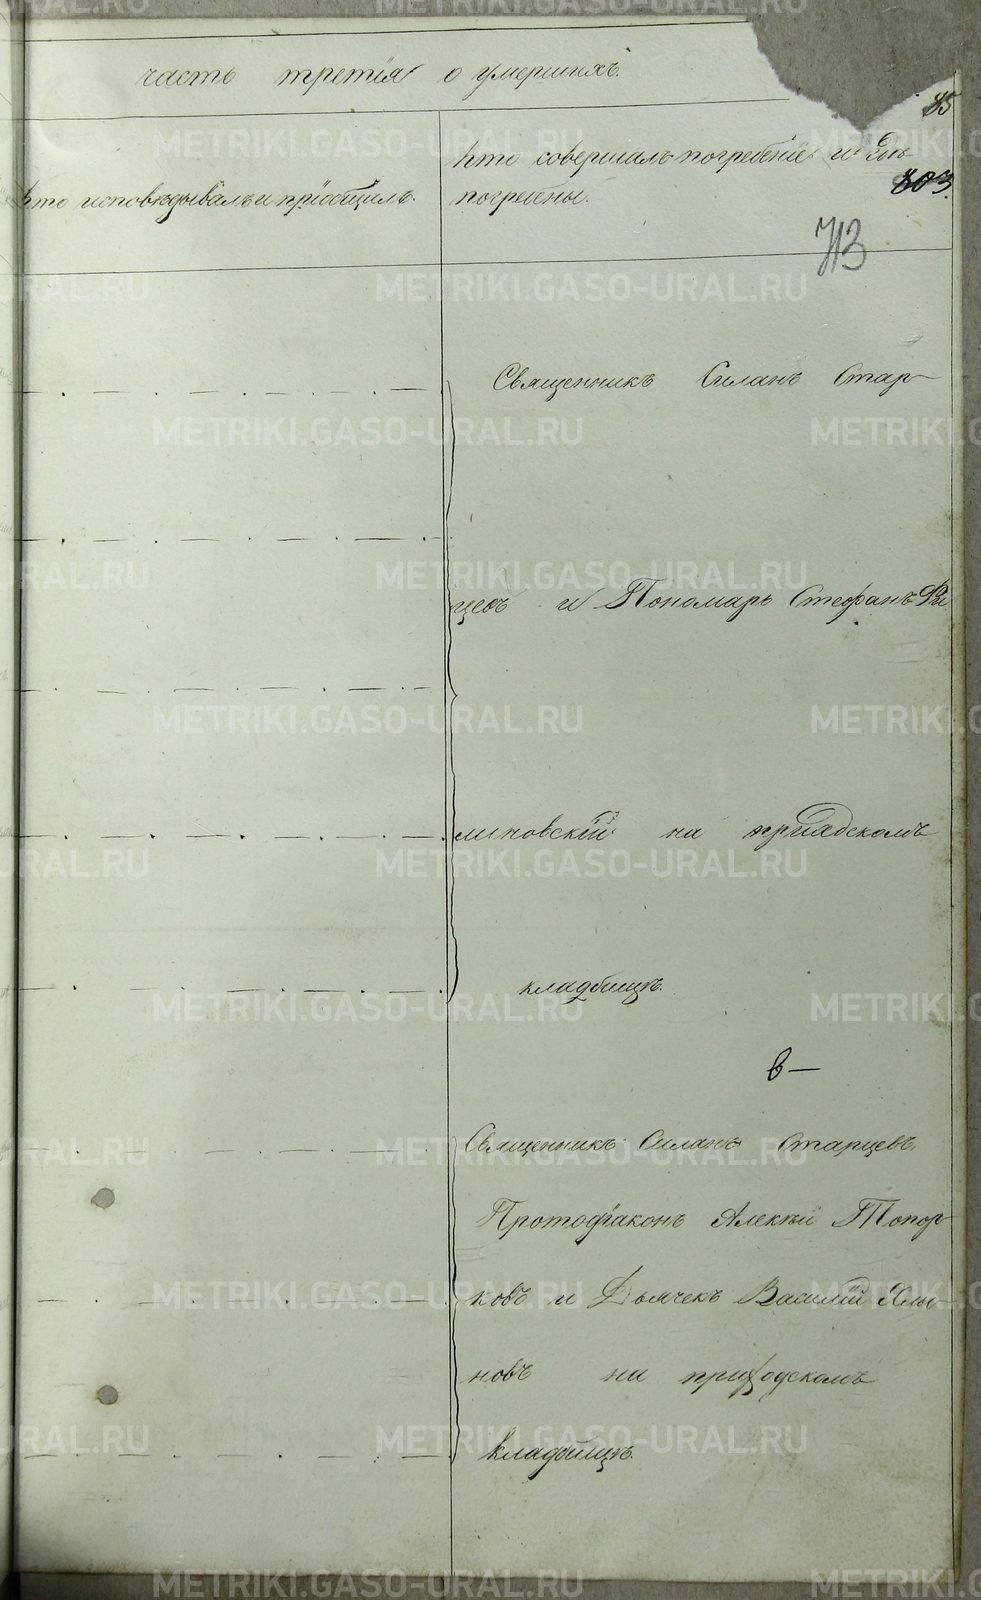 часть третія о умершихъ.
85
Кто исповѣдывалъ и пріобщилъ.
Кто совершалъ погребеніе и гдѣ
погребены.
803.
713
Священникъ Силанъ Стар-
цевъ и Пономарь Стефанъ Фи
липовскій на приходскомъ
кладбищѣ.
6—
Священникъ Силанъ Старцевъ,
Протодіаконъ Алексѣй Топор-
ковъ и Дьячекъ Василій Хлы-
новъ на приходскомъ
кладбищѣ.
METRIKI.GASO-URAL.RU